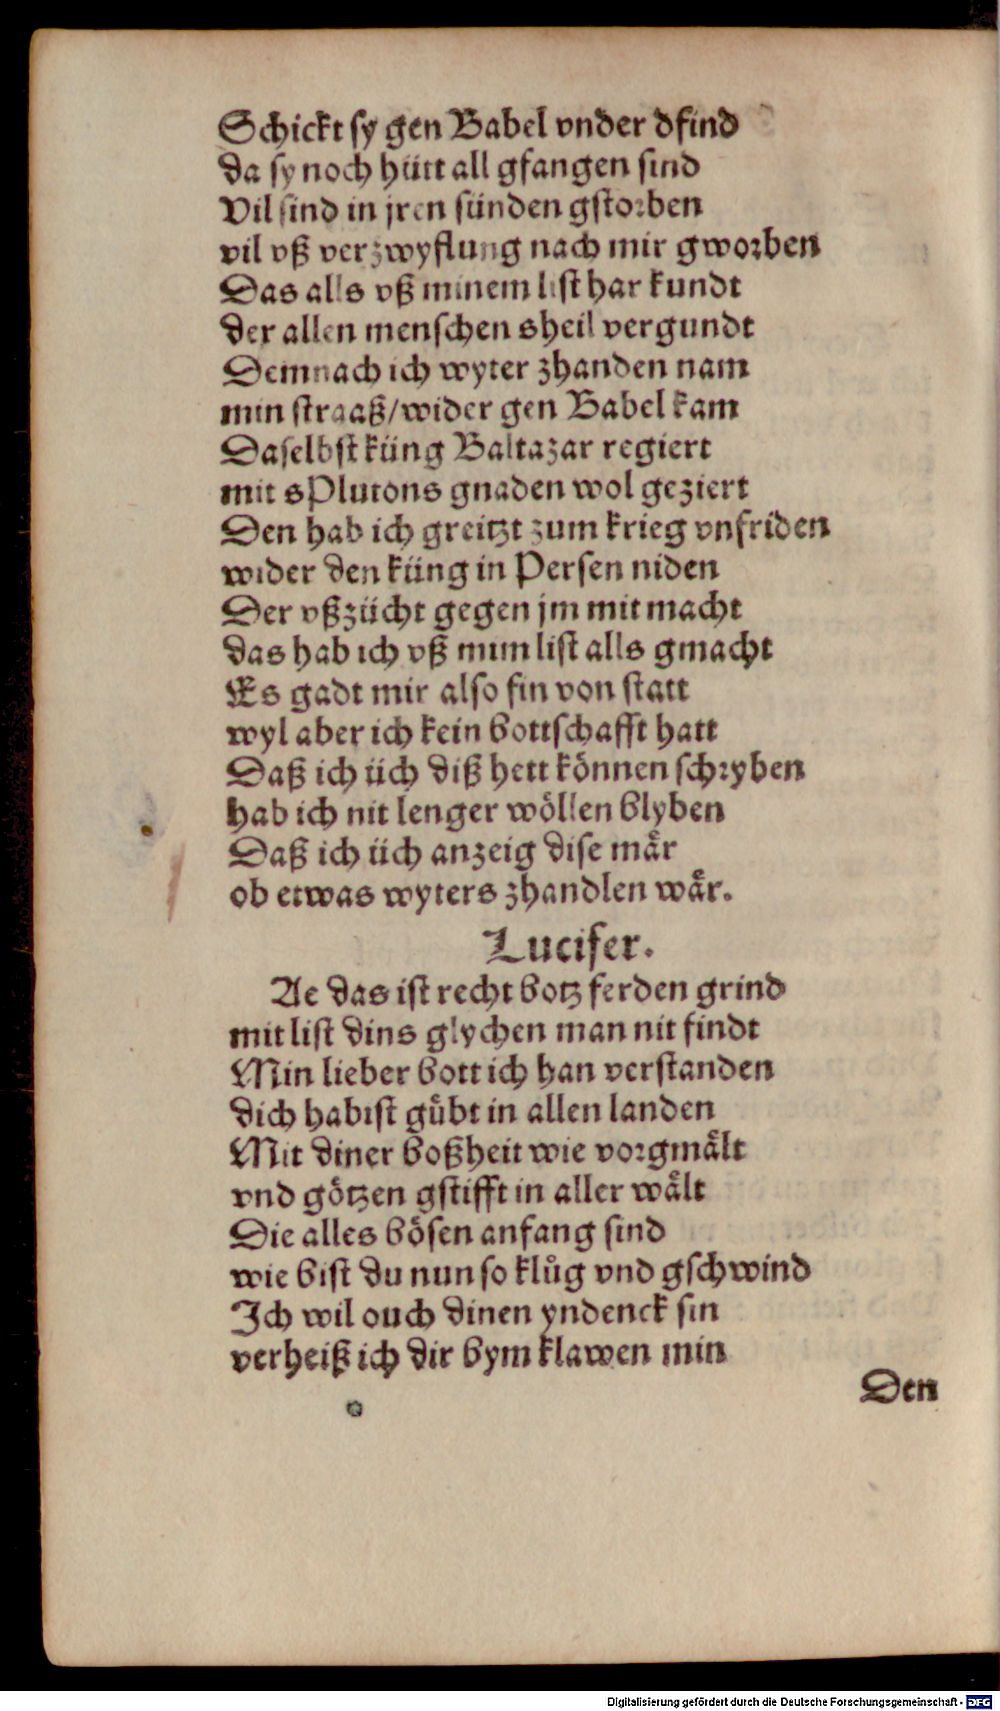 Schickt sy gen Babel vnder dfind
da sy noch hütt all gfangen sind
Vil sind in jren sünden gstorben
vil vß verzwyflung nach mir gworben
Das alls vß minem list har kundt
der allen menschen sheil vergundt
Demnach ich wyter zhanden nam
min straaß/wider gen Babel kam
Daselbst küng Baltazar regiert
mit sPlutons gnaden wol geziert
Den hab ich greitzt zum krieg vnfriden
wider den küng in Persen niden
Der vßzücht gegen jm mit macht
das hab ich vß mim list alls gmacht
Es gadt mir also fin von statt
wyl aber ich kein bottschafft hatt
Daß ich üch diß hett können schryben
hab ich nit lenger wöllen blyben
Daß ich üch anzeig dise mår
ob etwas wyters zhandlen wår.
Lucifer.
Ae das ist recht botz ferden grind
mit list dins glychen man nit findt
Min lieber bott ich han verstanden
dich habist gůbt in allen landen
Mit diner boßheit wie vorgmålt
vnd götzen gstifft in aller wålt
Die alles bösen anfang sind
wie bist du nun so klůg vnd gschwind
Ich wil ouch dinen yndenck sin
verheiß ich dir bym klawen min
Den
Digitalisierung gefördert durch die Deutsche Forschungsgemeinschaft - DFG